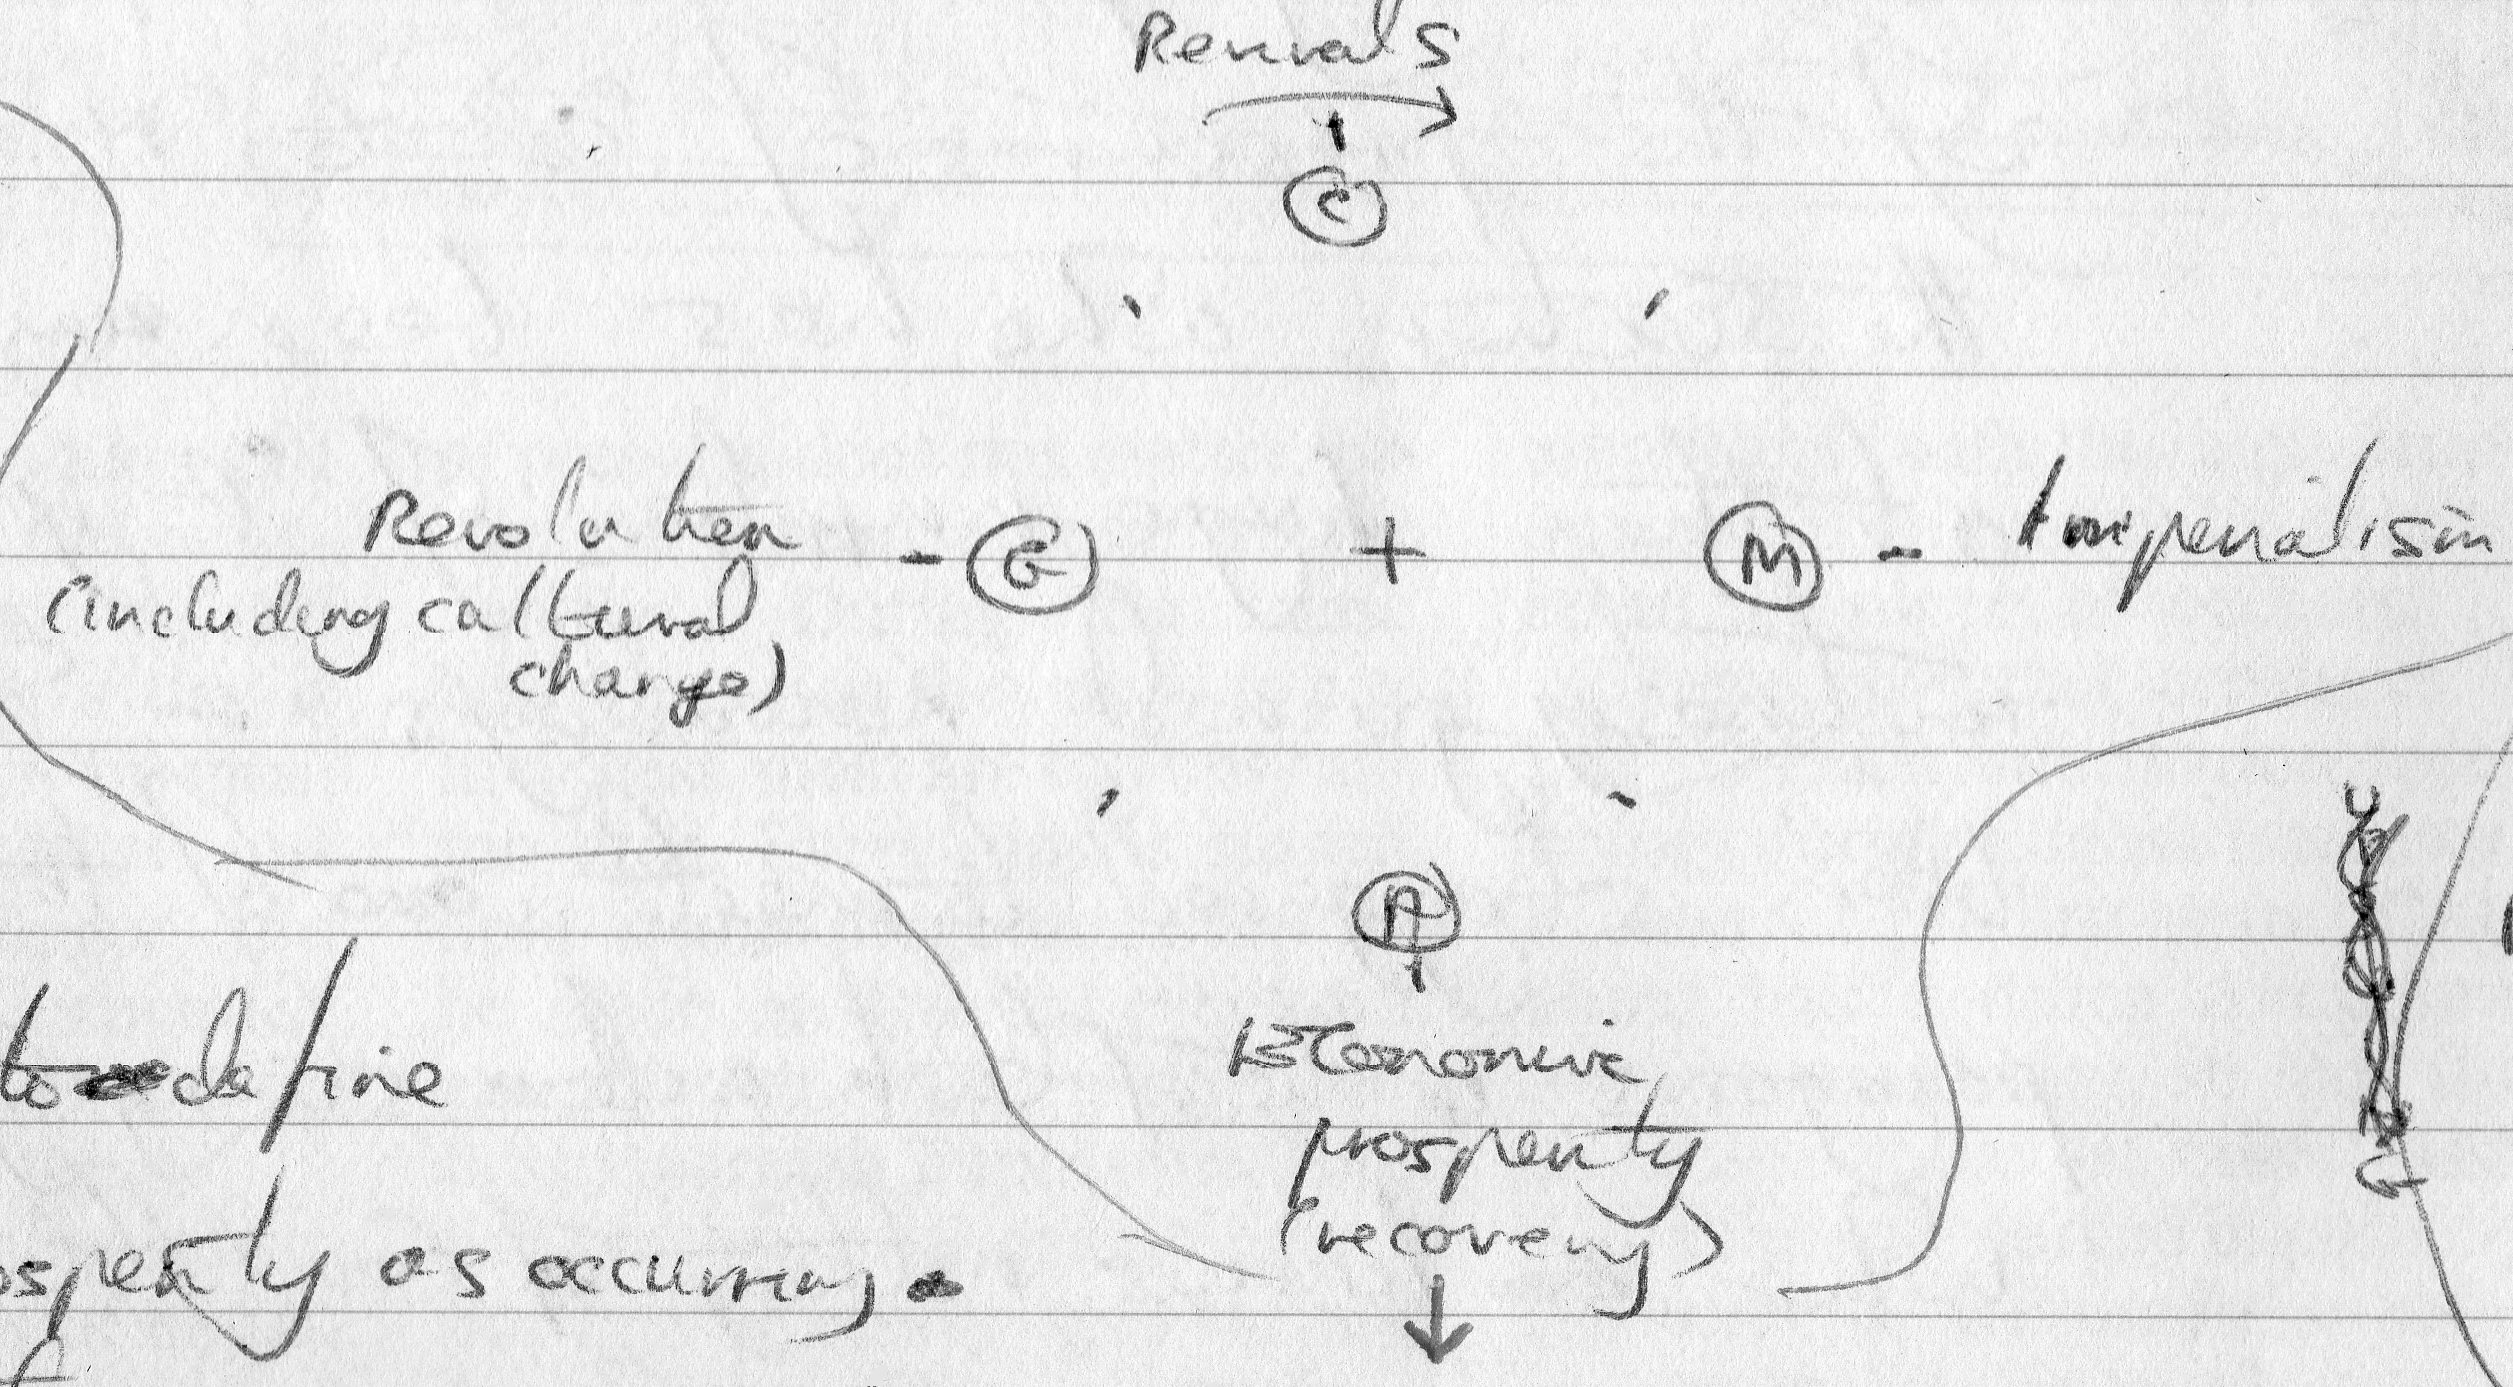 Revivals
C
Revolution - G + M - Imperialism
(including cultural
change)
A
Economic
prosperity
(recovery)
to define
osperity as occurring.